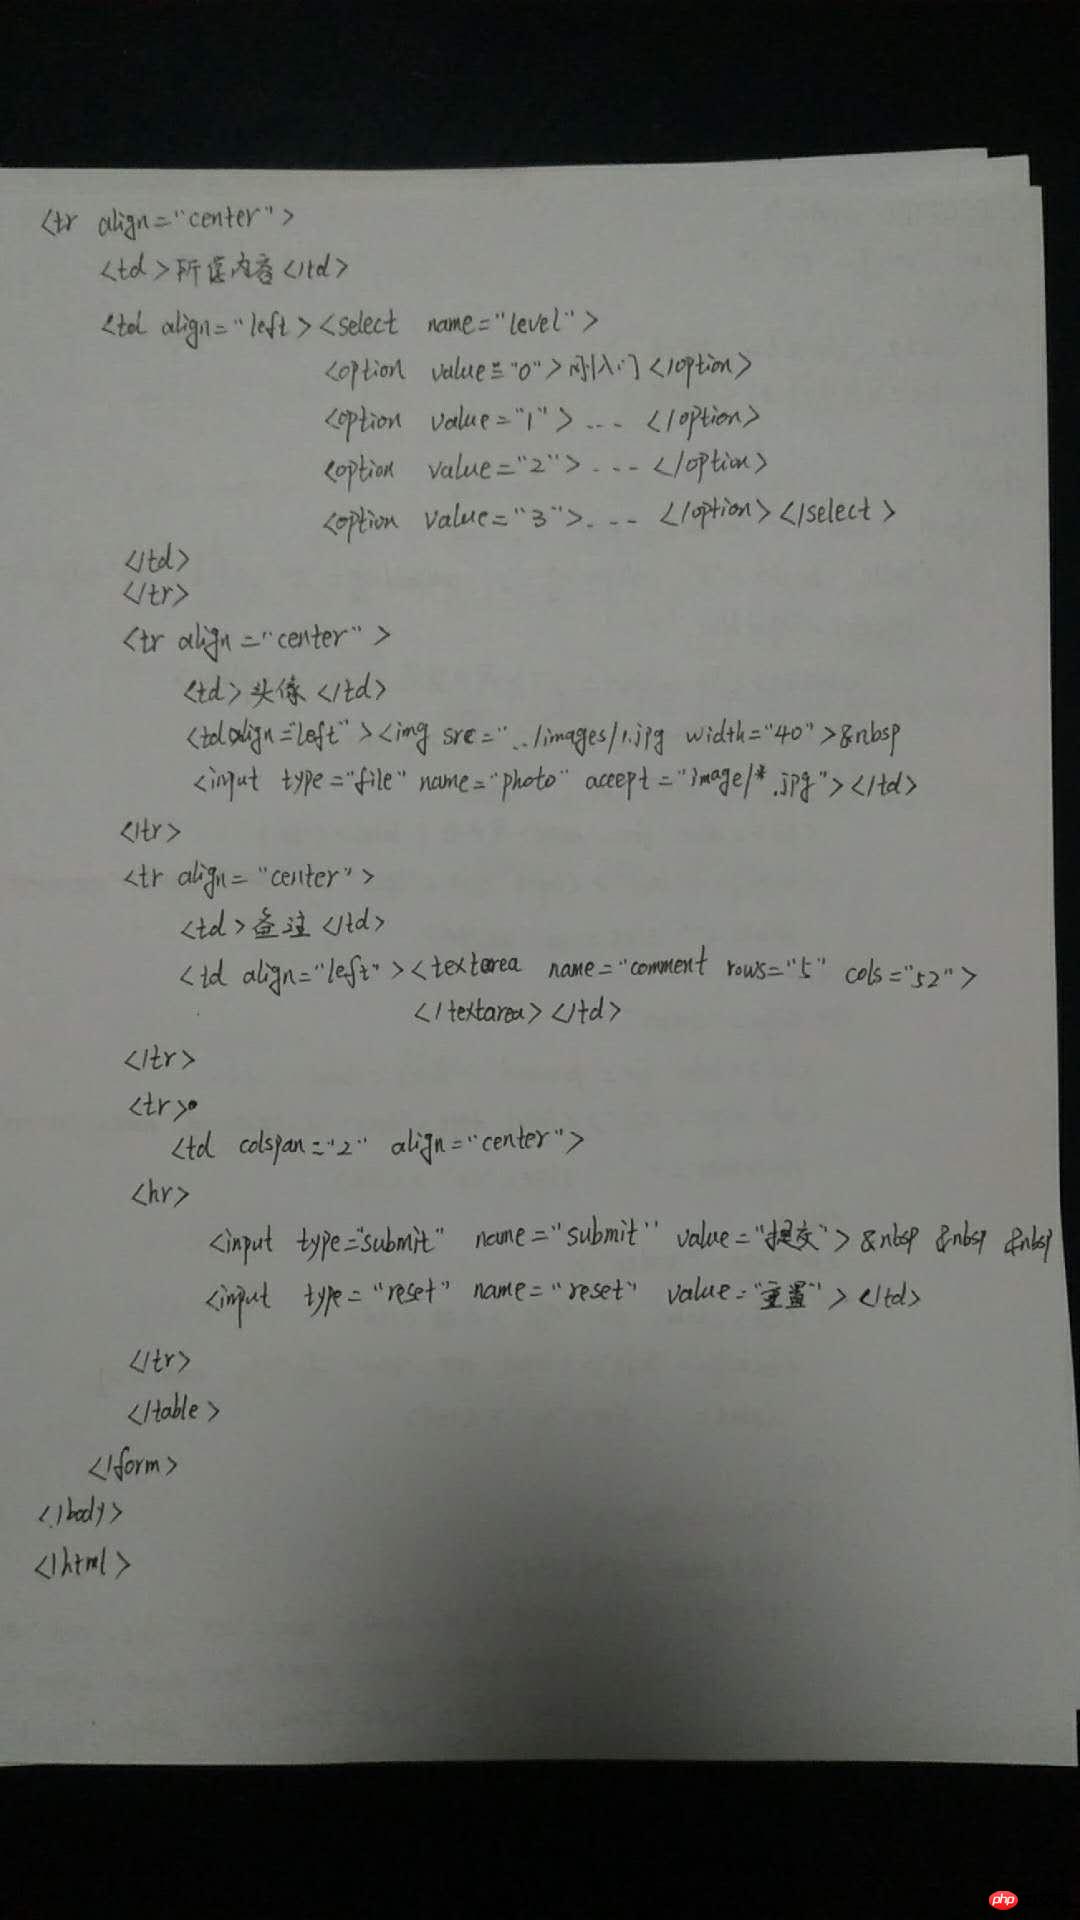 <tr align="center">
<td>所读内容</td>
<td align="left><select name="level">
<option value="0">刚入门</option>
<option value="1">...</option>
<option value="2">....</option>
<option value="3">....</option></select>
</td>
</tr>
<tr align="center">
<td>头像</td>
<td align="left"><img src="../images/1.jpg width="40">&nbsp
<input type="file" name="photo" accept="image/*.jpg"></td>
</tr>
<tr align="center">
<td>备注</td>
<td align="left"><textarea name="comment rows="5" cols="52">
</textarea></td>
</tr>
<tr>
<td colspan="2" align="center">
<hr>
<input type="submit" name="submit" value="提交">&nbsp &nbsp &nbsp
<input type="reset" name="reset" value="重置"></td>
</tr>
</table>
</form>
</body>
</html>
php